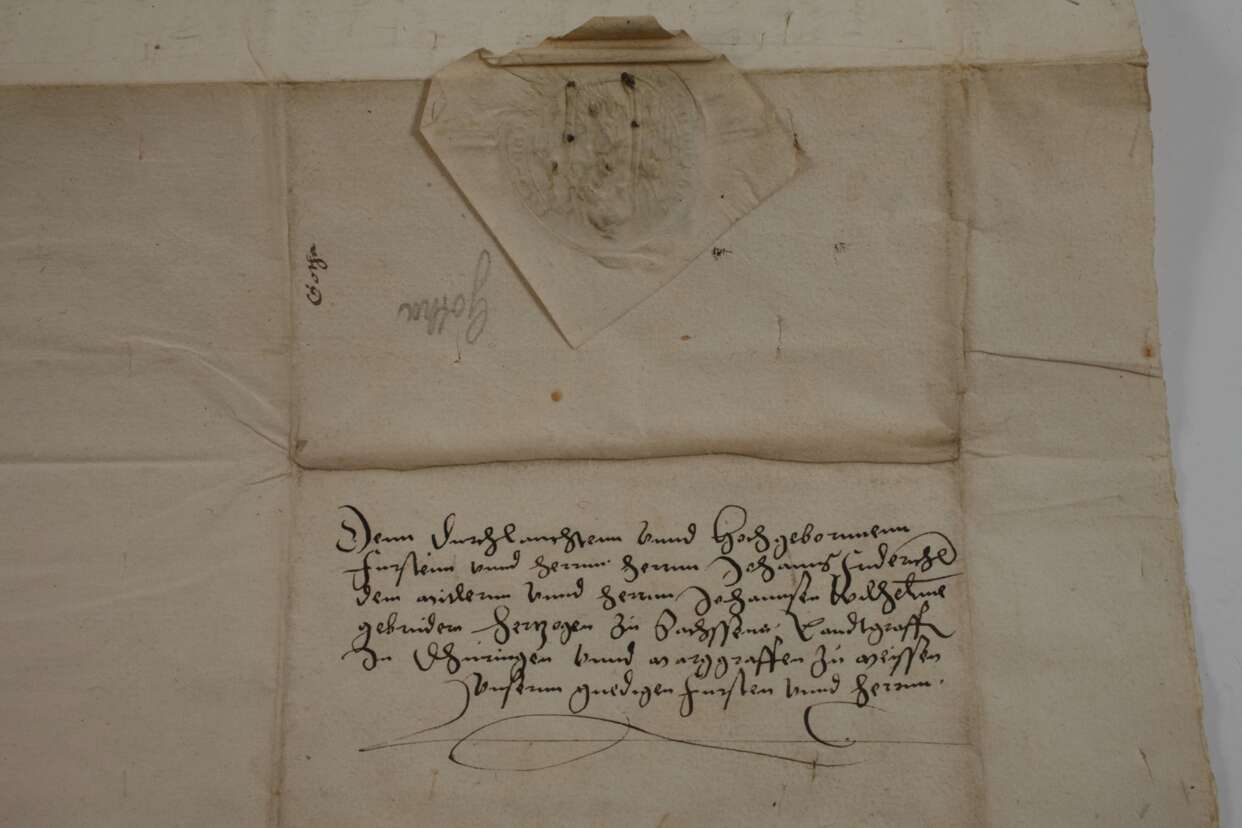 Gotha
Gotha
Denn durchlauchtenn vnnd Hochgebornnenn
Fursten vnnd herrnn herrnn Johanns Friderich
dem mitlern vnnd herrnn Johannsen Wilhelme
gebrudern Hertzogen zu Sachssenn Landtgraffen
In Dhuringen vnnd marggraffen zu meissen
vnsernn gnedigen Fursten vnnd herrnn.